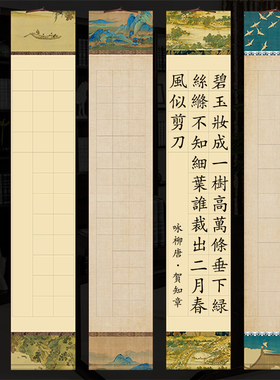 碧玉妝成一樹高萬條垂下緑
絲縧不知細葉誰裁出二月春
風似剪刀
咏柳唐·賀知章